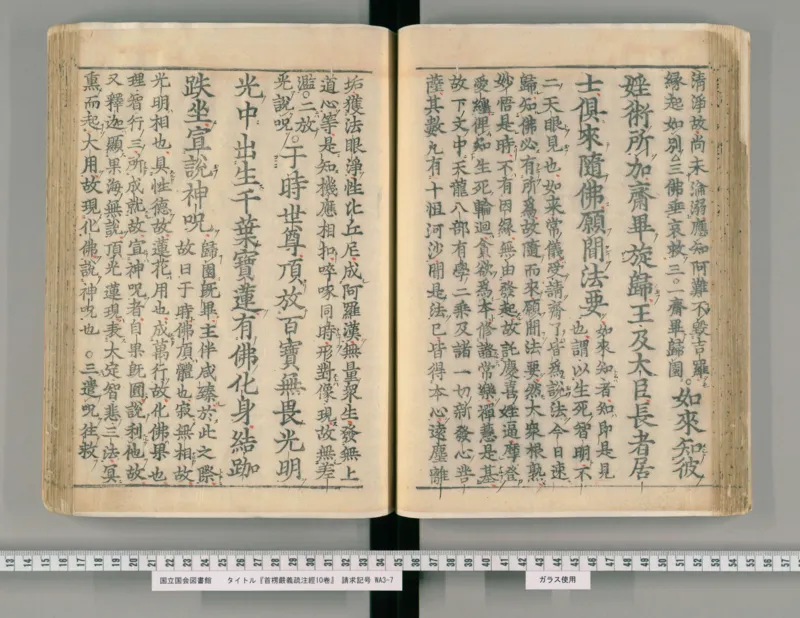 清淨故尚未淪溺應知阿難不毀吉羅
縁起如別△三佛垂哀救三○一齋畢歸園。
如來知彼
婬術所加齋畢旋歸王及大臣長者居
士俱來隨佛願聞法要
如來知者知即是見
也謂以生死智明不
二天眼見也如來常儀受請齋了皆為說法今日速
歸知佛必有所為故隨而來願聞法要然大衆根熟
妙悟是時不有因縁無由發起故託慶喜婬逼摩登
愛纏俾知生死輪迴貪欲為本修諸常樂禪慧是基
故下文中天龍八部有學二乘及諸一切新發心菩
薩其數凡有十恒河沙明是法已皆得本心遠塵離
垢獲法眼淨性比丘尼成阿羅漢無量衆生發無上
道心等是知機應相扣啐啄同時形對像現故無差
濫。二放
光說呪。
于時世尊頂放百寶無畏光明
光中出生千葉寶蓮有佛化身結跏
趺坐宣說神呪
歸園既畢主伴咸臻於此之際
故曰于時佛頂體也寂無相故
光明相也具性德故蓮花用也成萬行故化佛果也
理智行三所成就故宣神呪者自果既圓說利他故
又釋迦顯果海無說頂光蓮現表大定智悲三法冥
熏而起大用故現化佛說神呪也 ○三遣呪往救
13 14 15 16 17 18 19 20 21 22 23 24 25 26 27 28 29 30 31 32 33 34 35 36 37 38 39 40 41 42 43 44 45 46 47 48 49 50 51 52 53 54 55 56 57
国立国会図書館 タイトル『首楞厳義疏注經10巻』 請求記号 WA3-7
ガラス使用